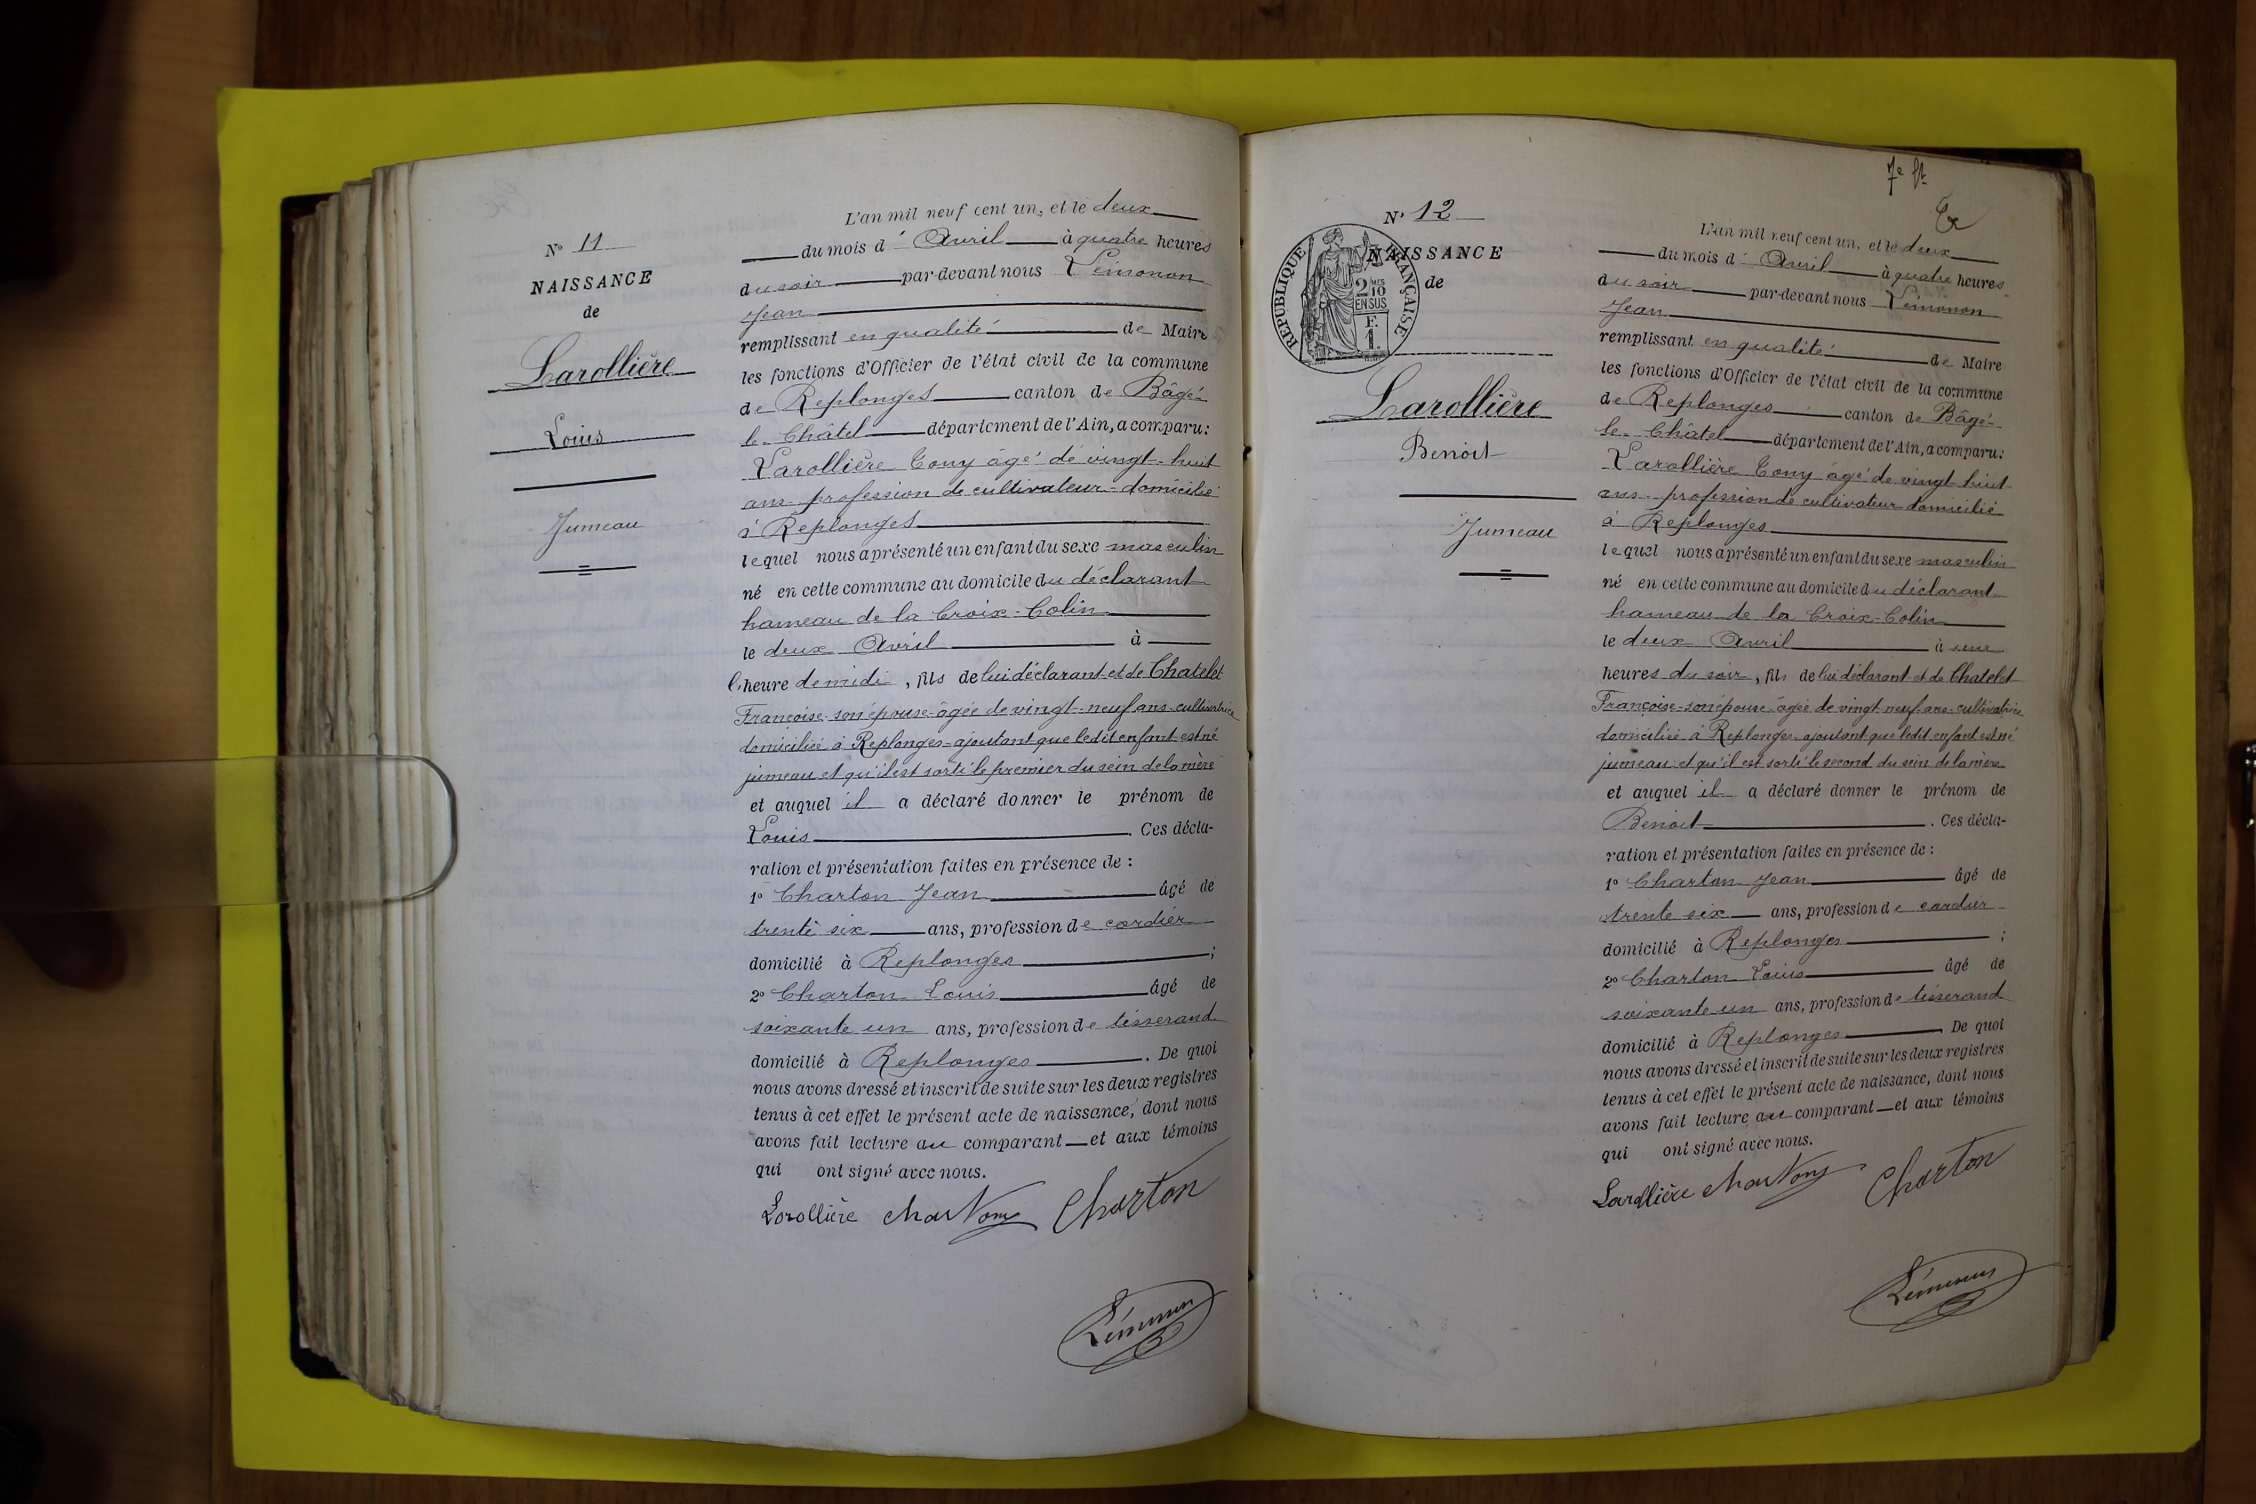 N° 11
NAISSANCE
de
Larollière
Louis
Jumeau
L'an mil neuf cent un, et le deux
du mois d' Avril à quatre heures
du soir par-devant nous Lémonon
Jean
remplissant en qualité de Maire
les fonctions d'Officier de l'état civil de la commune
de Replonges canton de Bâgé-
le-Châtel département de l'Ain, a comparu:
Larollière Tony âgé de vingt-huit
ans profession de cultivateur domicilié
à Replonges
lequel nous a présenté un enfant du sexe masculin
né en cette commune au domicile du déclarant
hameau de la Croix-Colin
le deux Avril à
l'heure de midi, fils de lui déclarant et de Chatelet
Françoise son épouse âgée de vingt-neuf ans cultivatrice
domiciliée à Replonges ajoutant que ledit enfant est né
jumeau et qu'il est sorti le premier du sein de la mère
et auquel il a déclaré donner le prénom de
Louis. Ces décla-
ration et présentation faites en présence de :
1° Charton Jean âgé de
trente six ans, profession de cordier
domicilié à Replonges ;
2° Charton Louis âgé de
soixante un ans, profession de tisserand
domicilié à Replonges. De quoi
nous avons dressé et inscrit de suite sur les deux registres
tenus à cet effet le présent acte de naissance, dont nous
avons fait lecture au comparant et aux témoins
qui ont signé avec nous.
Larollière Charton Charton
Lémonon
7e ft
N° 12
NAISSANCE
de
RÉPUBLIQUE FRANÇAISE
2 MES
10
EN SUS
F.
1.
Larollière
Benoit
Jumeau
L'an mil neuf cent un, et le deux
du mois d' Avril à quatre heures
du soir par-devant nous Lémonon
Jean
remplissant en qualité de Maire
les fonctions d'Officier de l'état civil de la commune
de Replonges canton de Bâgé-
le-Châtel département de l'Ain, a comparu:
Larollière Tony âgé de vingt-huit
ans profession de cultivateur domicilié
à Replonges
lequel nous a présenté un enfant du sexe masculin
né en cette commune au domicile du déclarant
hameau de la Croix-Colin
le deux Avril à une
heures du soir, fils de lui déclarant et de Chatelet
Françoise son épouse âgée de vingt-neuf ans cultivatrice
domiciliée à Replonges ajoutant que ledit enfant est né
jumeau et qu'il est sorti le second du sein de la mère
et auquel il a déclaré donner le prénom de
Benoit. Ces décla-
ration et présentation faites en présence de :
1° Charton Jean âgé de
trente six ans, profession de cordier
domicilié à Replonges ;
2° Charton Louis âgé de
soixante un ans, profession de tisserand
domicilié à Replonges. De quoi
nous avons dressé et inscrit de suite sur les deux registres
tenus à cet effet le présent acte de naissance, dont nous
avons fait lecture au comparant et aux témoins
qui ont signé avec nous.
Larollière Charton Charton
Lémonon